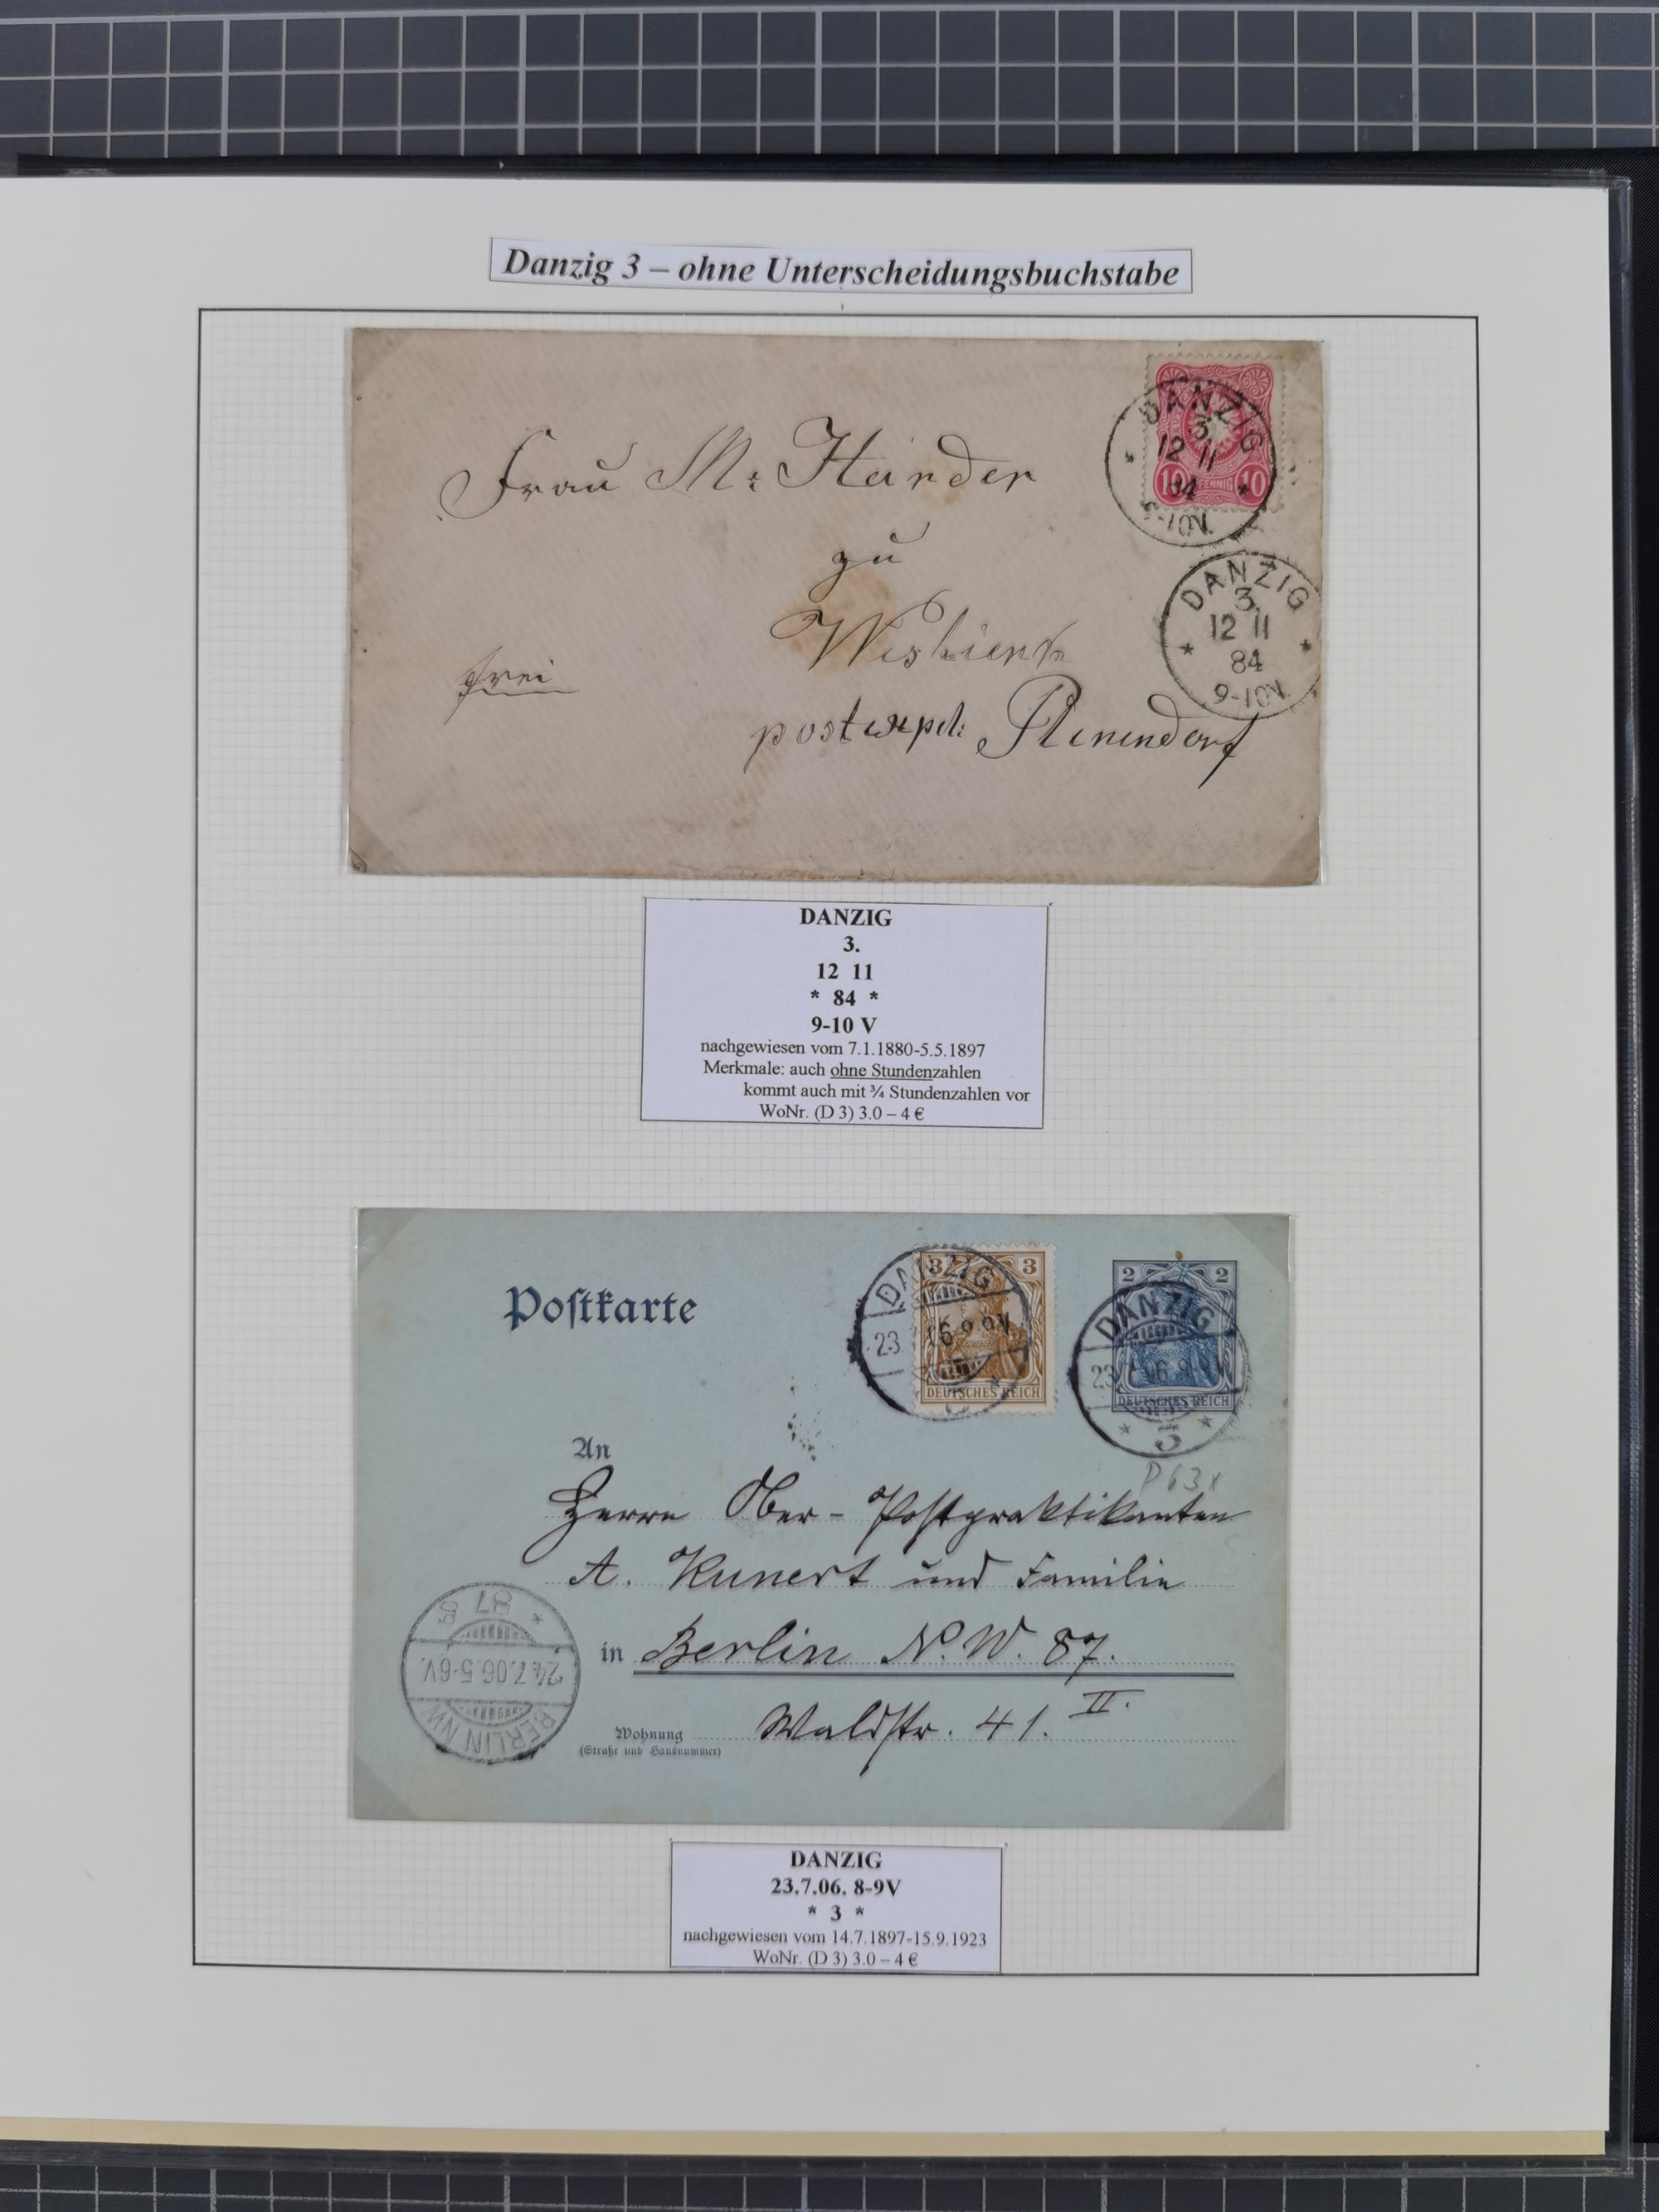 Danzig 3 – ohne Unterscheidungsbuchstabe
DANZIG
3.
12 11
84
9-10V.
10 PFENNIG 10
Frau M: Harder
zu
frei
DANZIG
3.
12 11
* 84 *
9-10V.
DANZIG
3.
12 11
* 84 *
9-10 V
nachgewiesen vom 7.1.1880-5.5.1897
Merkmale: auch ohne Stundenzahlen
kommt auch mit ¾ Stundenzahlen vor
WoNr. (D 3) 3.0 – 4 €
Postkarte
3 3
DANZIG
23. 06.8-9V
DEUTSCHES REICH
2 2
DANZIG
23.7.06.8-9V
DEUTSCHES REICH
* 3 *
P63x
An
Herrn Ober-Postpraktikanten
A. Kunert und Familie
in Berlin N.W. 87.
Waldstr. 41. II.
Wohnung
(Straße und Hausnummer)
BERLIN NW
24.7.06.5-6V.
* 87
DANZIG
23.7.06. 8-9V
* 3 *
nachgewiesen vom 14.7.1897-15.9.1923
WoNr. (D 3) 3.0 – 4 €